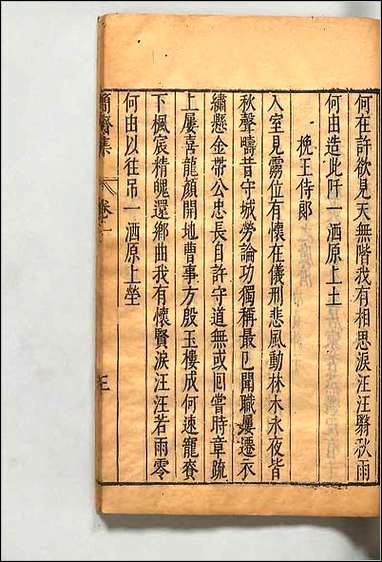 何在許欲見天無階我有相思淚汪汪翳秋雨
何由造此阡一洒原上土
挽王侍郎
入室見霧位有懷在儀刑悲風動林木永夜皆
秋聲疇昔守城勞論功獨稱最已聞職屢遷示
繡懸金帶公忠長自許守道無或回嘗時章疏
上屢喜龍顏開地曹事方殷玉樓成何速寵賚
下楓宸精魄還鄉曲我有懷賢淚汪汪若雨零
何由以往吊一洒原上塋
簡齋集
卷一